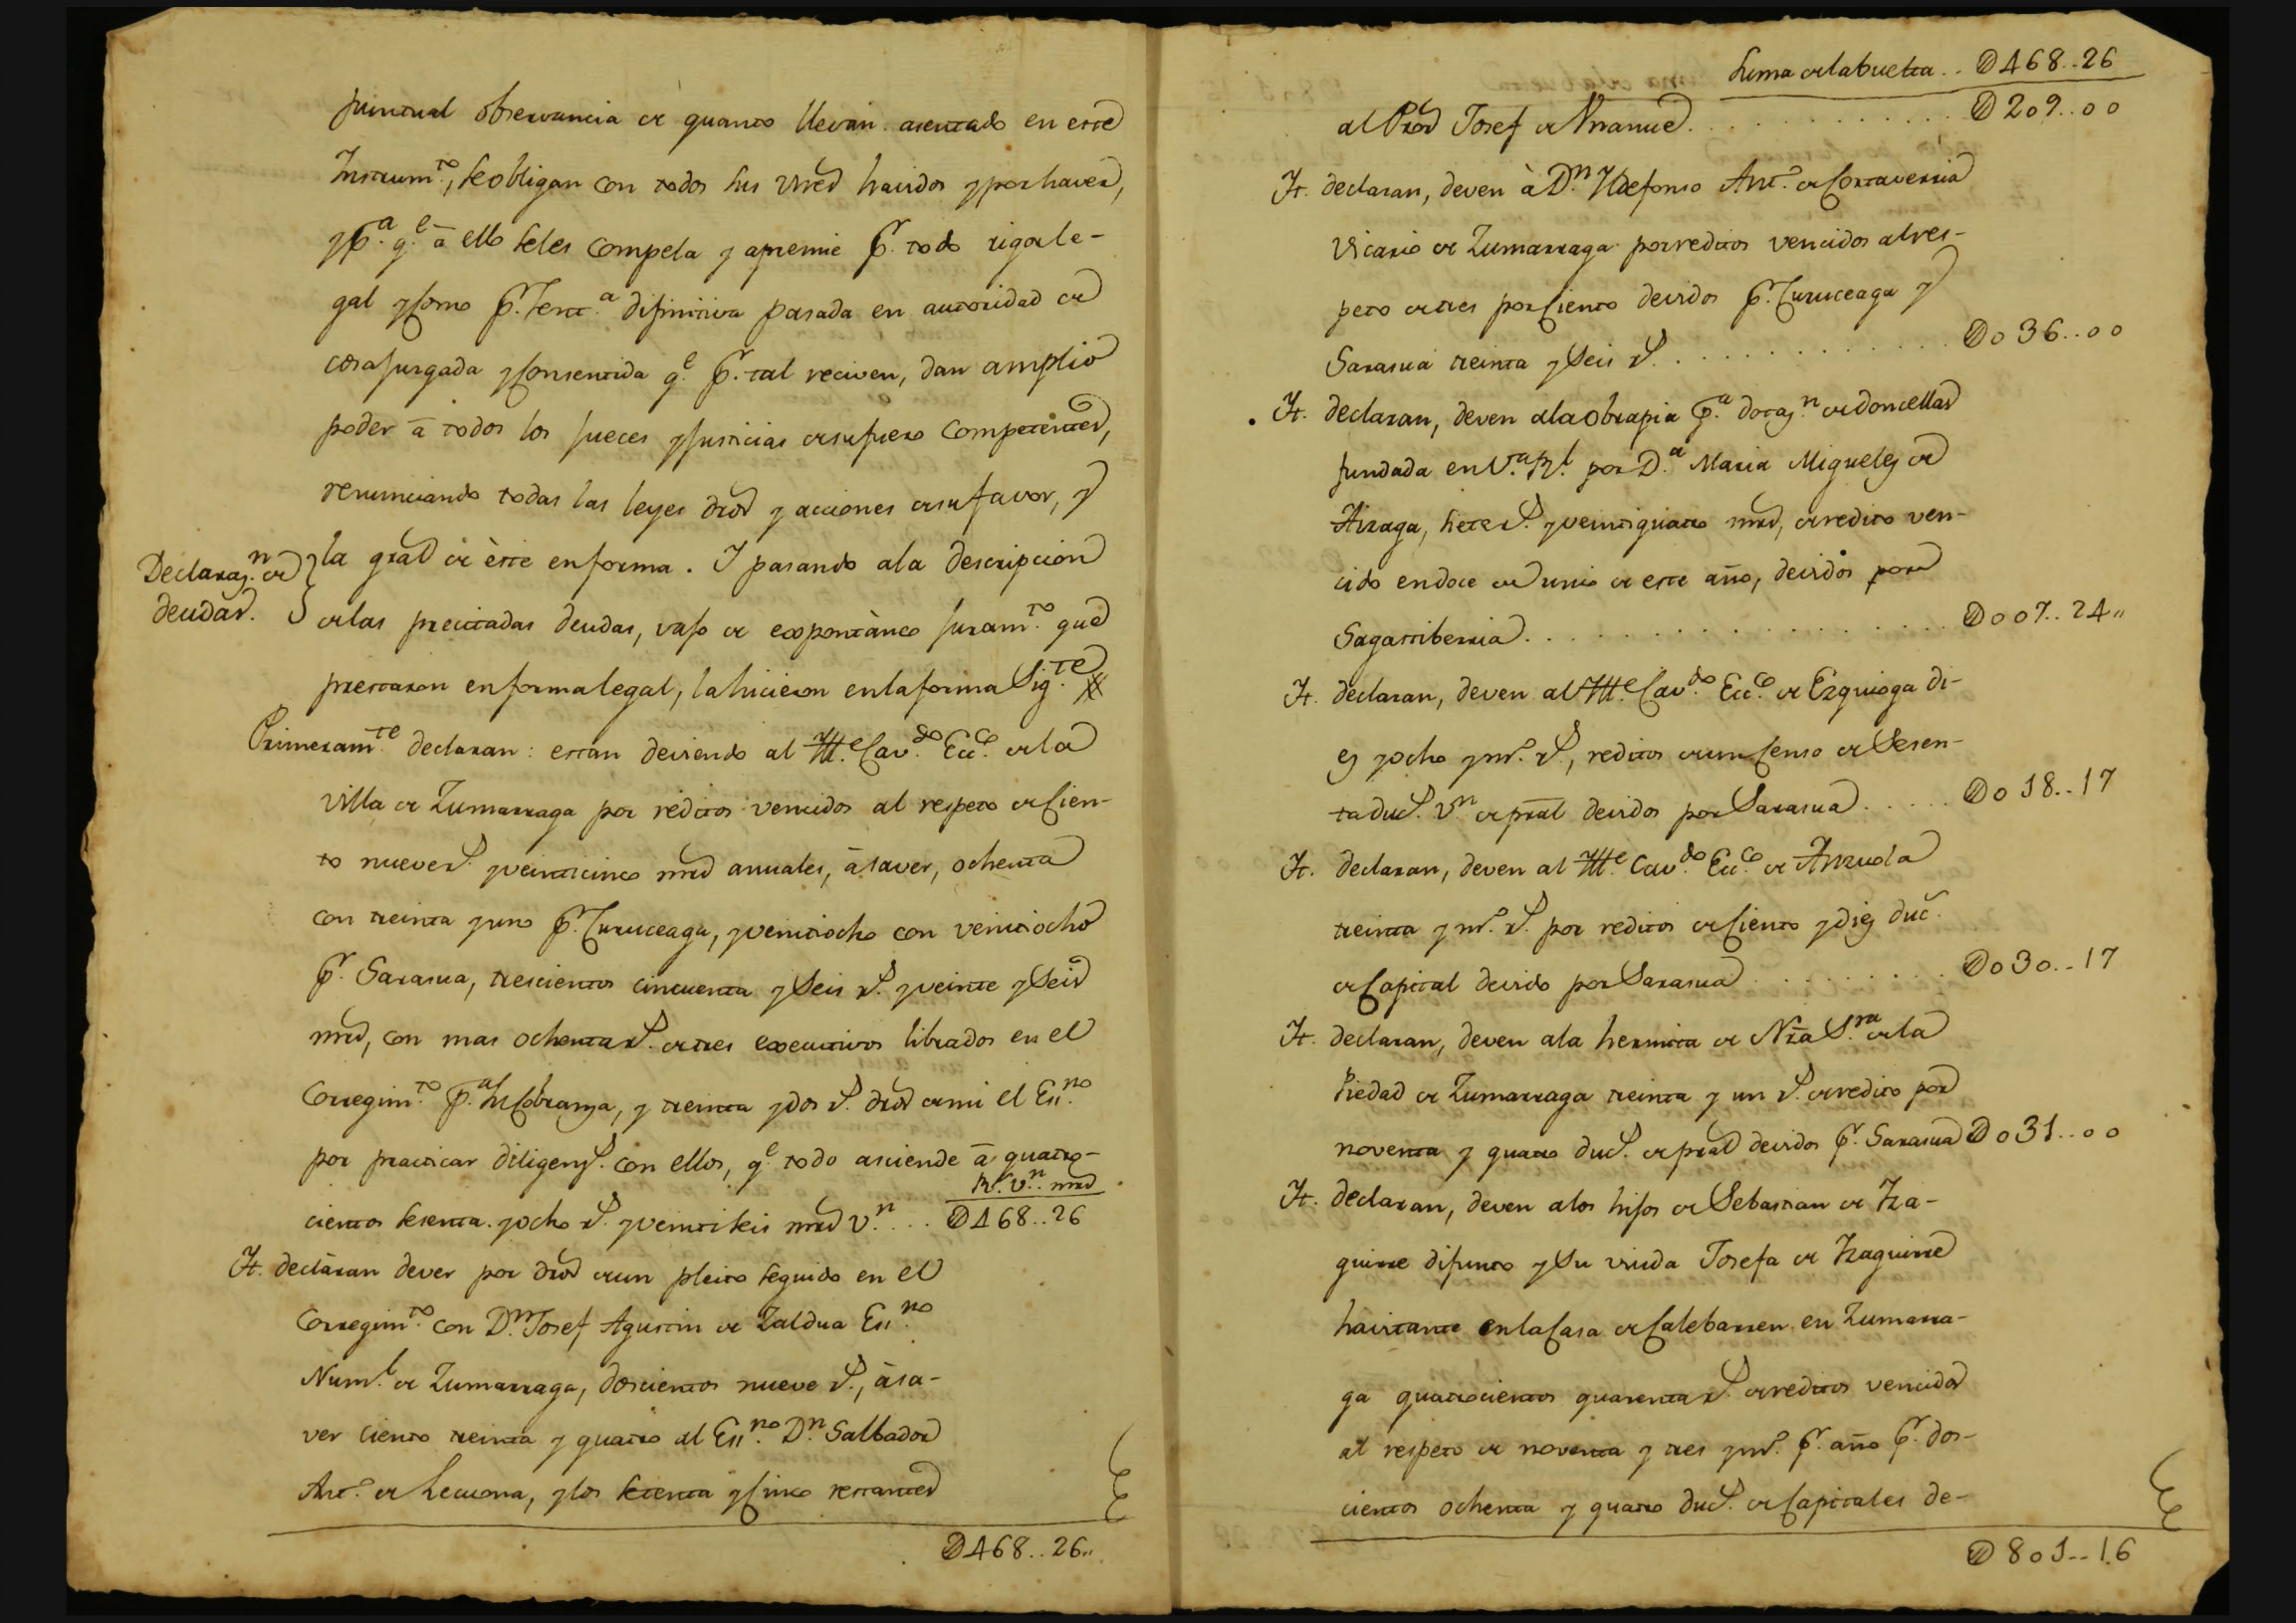 puntual observancia de quanto llevan asentado en este
Instrum.to, se obligan con todos sus vnes havidos y por haver,
y p.a q.e â ello se les compela y apremie p.r todo rigor le-
gal y como p.r Sent.a difinitiva pasada en autoridad de
cosa juzgada y consentida q.e p.r tal reciven, dan amplio
poder â todos los jueces y justicias de su fuero competentes,
renunciando todas las leyes dros y acciones de su favor, y
la gral de èste en forma. I pasando a la descripcion
Declaraz.n de
deudas.
de las precitadas deudas, vajo de expontàneo juram.to que
prestaron en forma legal, la hicieron en la forma Sig.te
Primeram.te declaran: estan deviendo al Ill.e Cav.do Ecc.co de la
villa de Zumarraga por réditos vencidos al respeto de Cien-
to nueve r.s y veinticinco mrs anuales, â saver, ochenta
con treinta y uno p.r Curuceaga, y veintiocho con veintiocho
p.r Sarasua, trescientos cincuenta y Seis r.s y veinte y Seis
mrs, con mas ochenta r.s de tres executivos librados en el
Corregim.to p.a su Cobranza, y treinta y dos r.s dros de mi el Ess.no
por practicar diligenz.s con ellos, q.e todo asciende â quatro-
R.s v.n mrs
cientos sesenta y ocho r.s y veintiseis mrs v.n .. D468..26
It. declaran dever por dros de un pleito seguido en el
Corregim.to con D.n Josef Agustin de Zaldua Ess.no
Num.l de Zumarraga, doscientos nueve r.s, à sa-
ver ciento treinta y quatro al Ess.no D.n Salbador
Ant.o de Lecuona, y los setenta y Cinco restantes
D468..26..
Suma de la buelta .. D468..26
al Pror Josef de Arranue . . . . . D209..00
It. declaran, deven à D.n Yldefonso Ant.o de Cortaverria
Vicario de Zumarraga por reditos vencidos al res-
peto de tres por Ciento devidos p.r Curuceaga y
Sarasua treinta y Seis r.s . . . . . D036..00
It. declaran, deven a la obra pia p.a dotaz.n de doncellas
fundada en V.a R.l por D.a Maria Miguelez de
Aizaga, siete r.s y veintiquatro mrs, de redito ven-
cido en doce de Junio de este año, devidos por
Sagastiberria . . . . . D007..24..
It. declaran, deven al Ill.e Cav.do Ecc.co de Ezquioga di-
ez y ocho y m.o r.s, reditos de un Censo de Sesen-
ta duc.s v.n de pral devidos por Sarasua . . . . . D018..17
It. declaran, deven al Ill.e Cav.do Ecc.co de Anzuola
treinta y m.o r.s por reditos de Ciento y diez duc.
de Capital devido por Sarasua . . . . . D030..17
It. declaran, deven a la hermita de Nra S.ra de la
Piedad de Zumarraga treinta y un r.s de redito por
noventa y quatro duc.s de pral devidos p.r Sarasua D031..00
It. declaran, deven a los hijos de Sebastian de Iza-
guirre difunto y Su viuda Josefa de Izaguirre
havitante en la Casa de Calebarren en Zumarra-
ga quatrocientos quarenta r.s de reditos vencidos
al respeto de noventa y tres y m.o p.r año p.r dos-
cientos ochenta y quatro duc.s de Capitales de-
D801..16